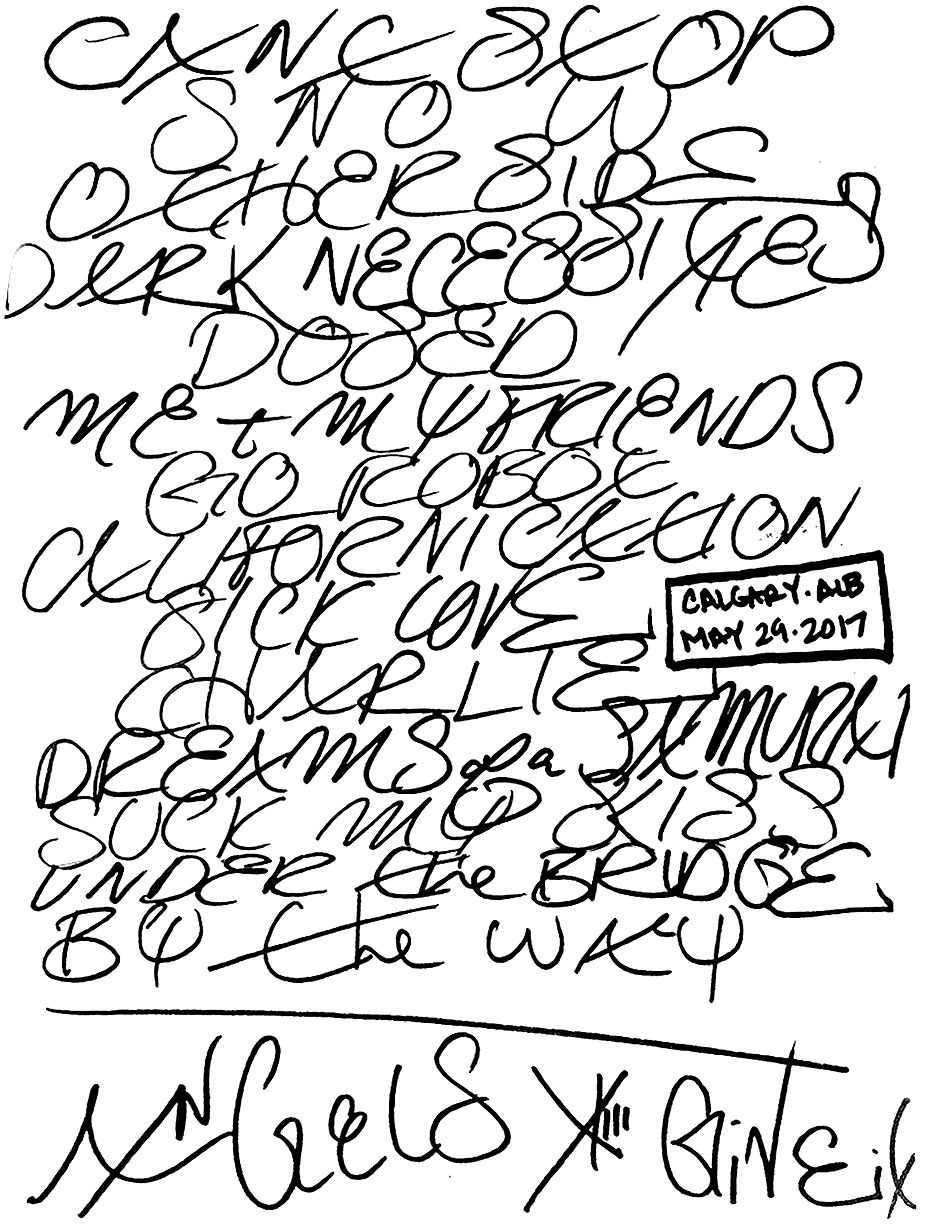 CANT STOP
SNOW
OTHERSIDE
DARK NECESSITIES
DOSED
ME + MY FRIENDS
GO ROBOT
CALIFORNICATION
SICK LOVE
CALGARY. ALB
MAY 29. 2017
DREAMS of a SAMURAI
SUCK MY KISS
UNDER the BRIDGE
BY the WAY
ANGELS
GiVE iT